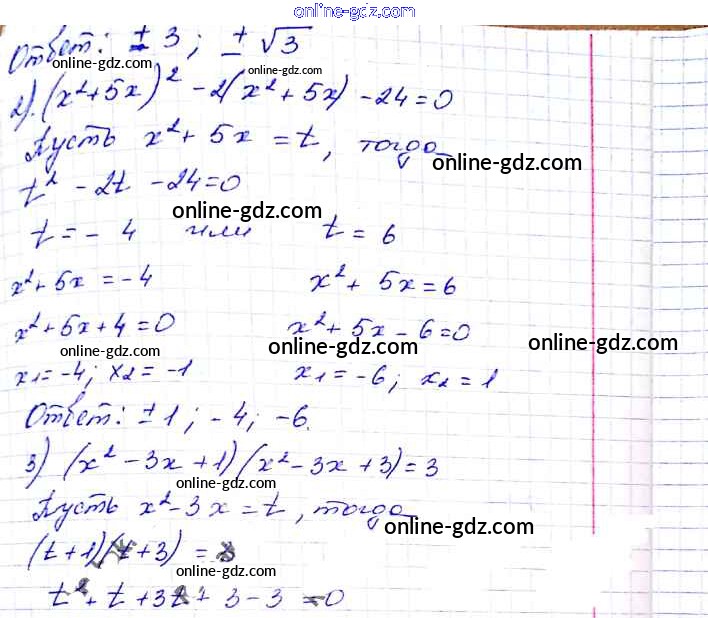 online-gdz.com
Ответ: ± 3; ± √3
online-gdz.com online-gdz.com
2). (x²+5x)² - 2(x²+5x) - 24=0
Пусть x²+5x = t, тогда
online-gdz.com
t² - 2t - 24=0
online-gdz.com
t = - 4 или t = 6
x²+5x = -4 x²+ 5x=6
x²+5x+4=0 x²+5x-6=0
online-gdz.com online-gdz.com
x1=-4; x2= -1 x1=-6; x2 =1
online-gdz.com
Ответ: ±1; -4; -6.
3) (x²-3x+1)(x²-3x+3)=3
online-gdz.com
Пусть x²-3x=t, тогда
online-gdz.com
(t+1)(t+3) = 3
online-gdz.com
t²+ t+3t+ 3-3 =0